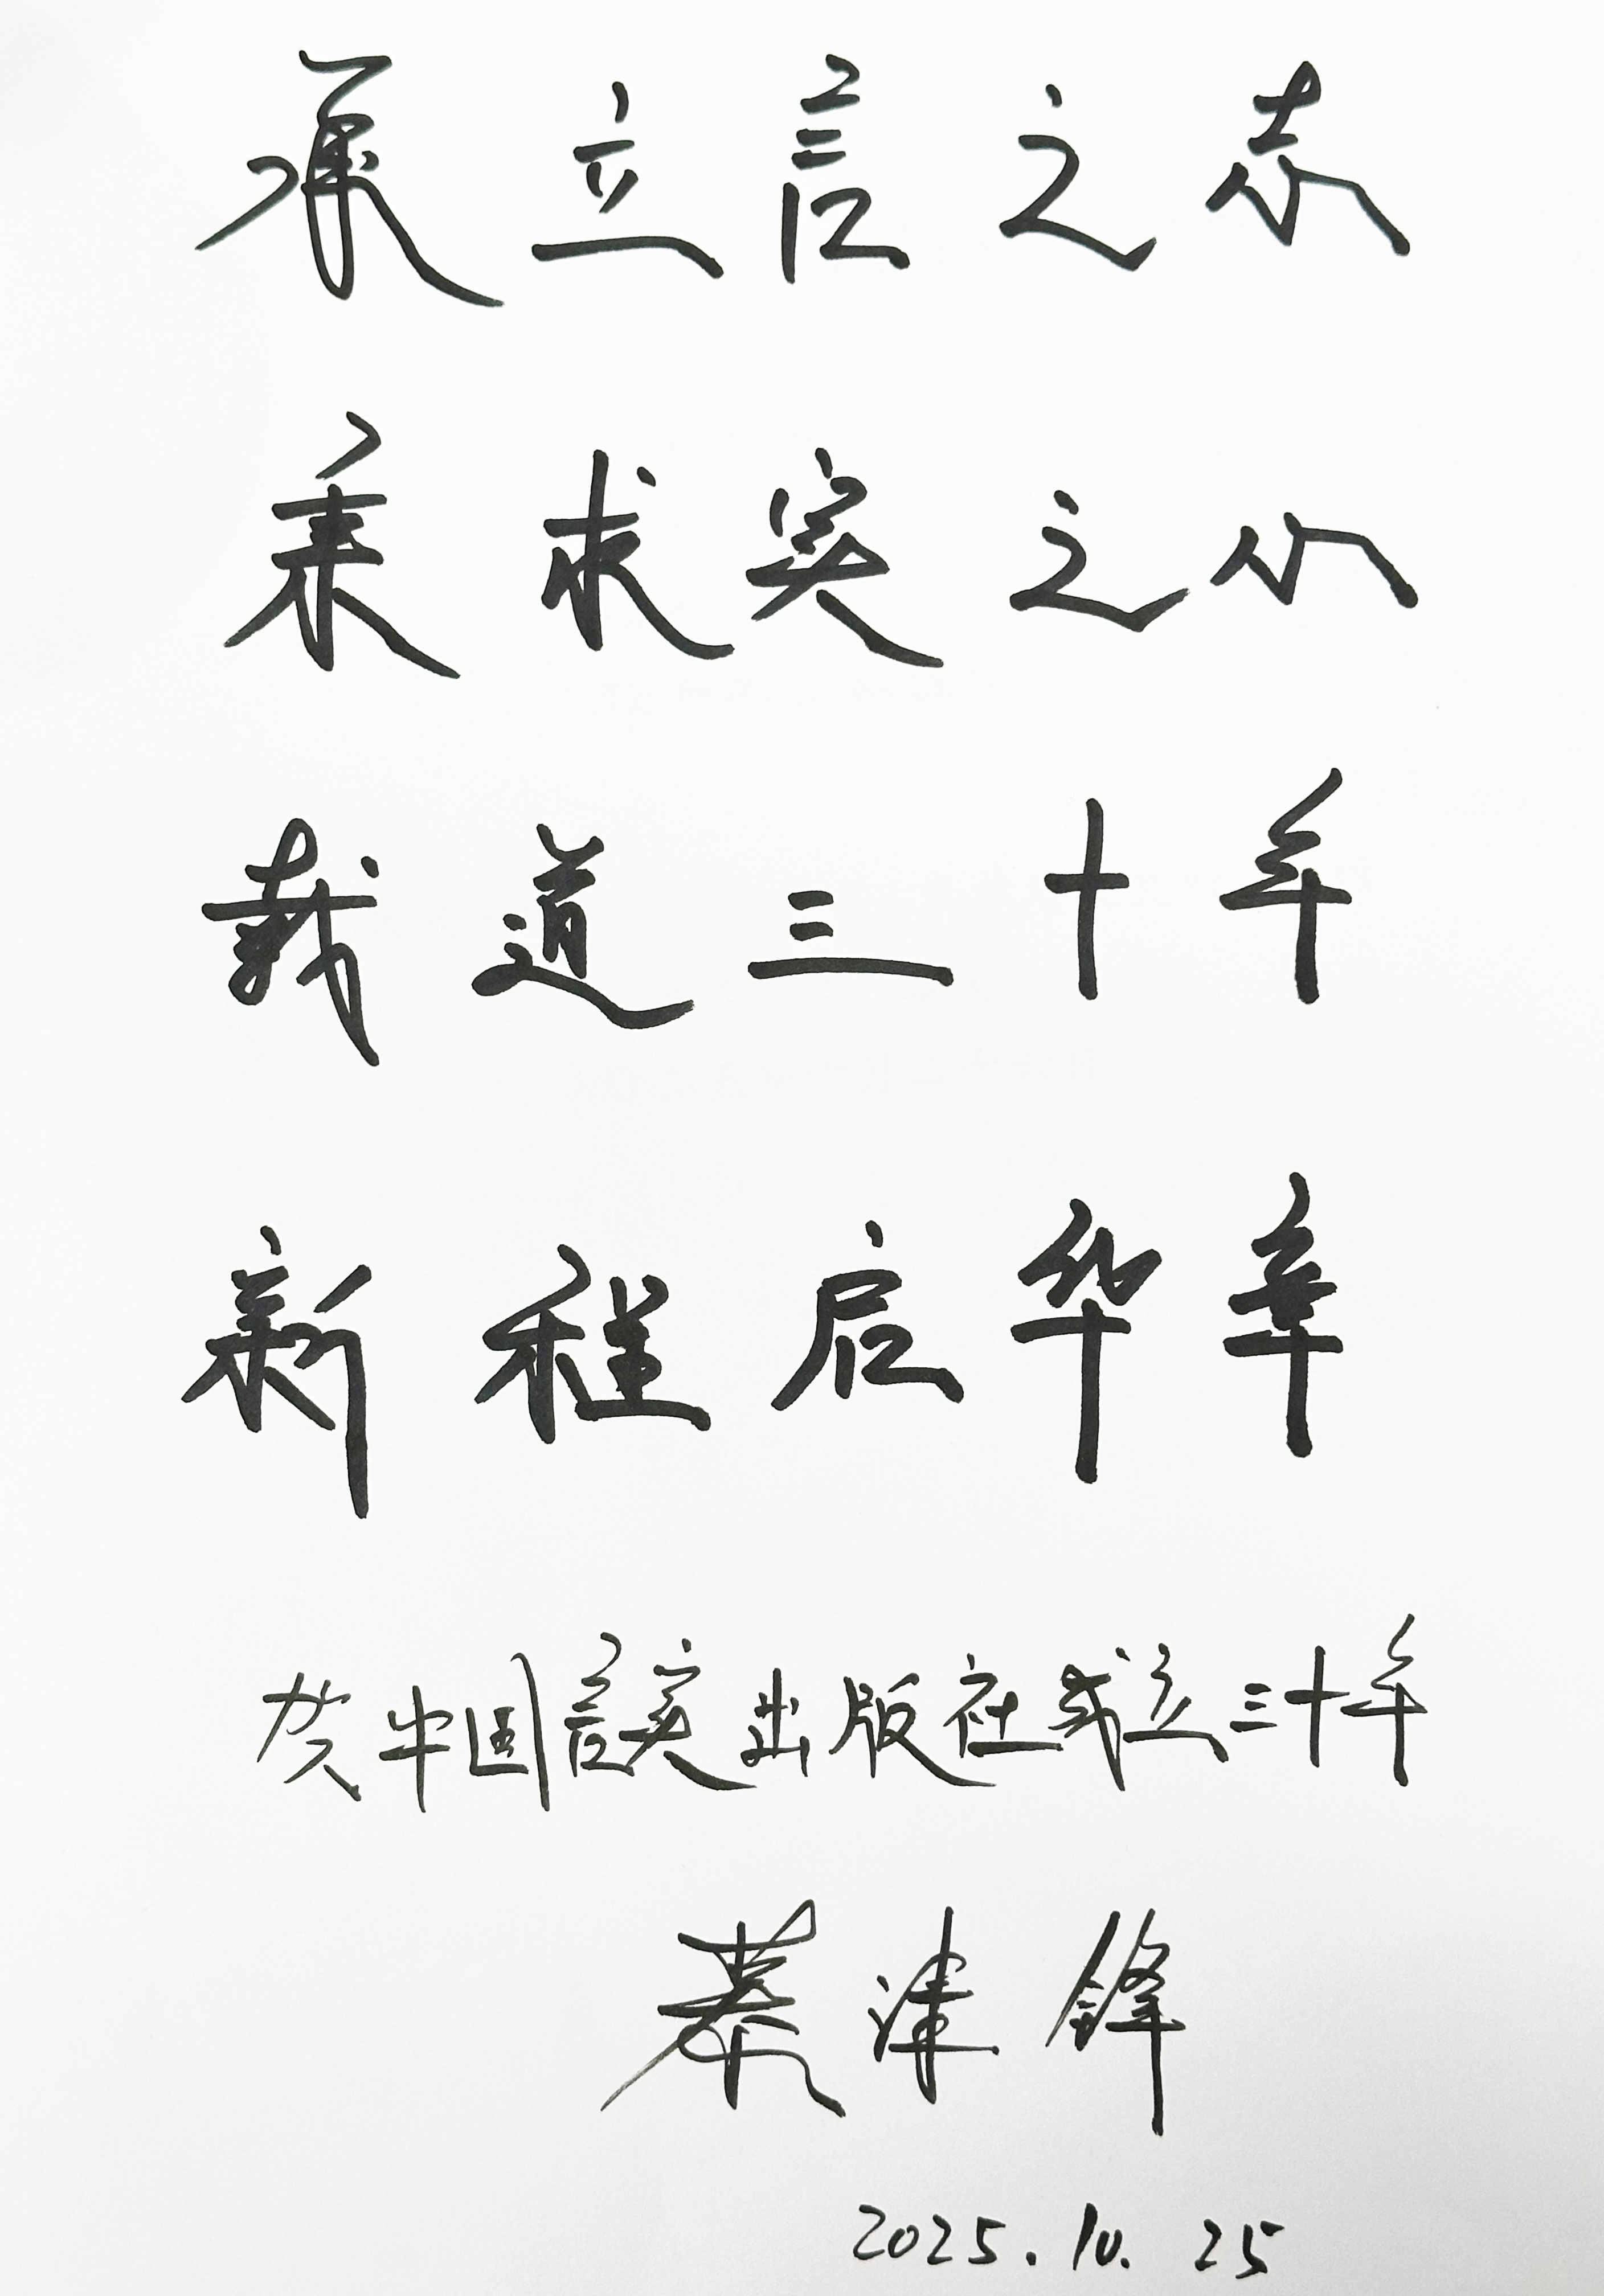 承立言之志
秉求实之心
载道三十年
新程启华章
贺中国言实出版社成立三十年
蔡津锋
2025.10.25